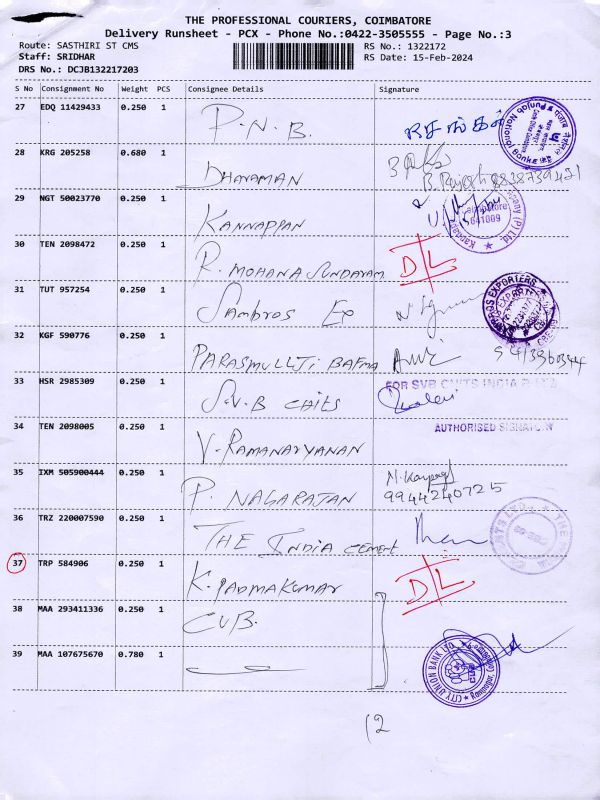 THE PROFESSIONAL COURIERS, COIMBATORE
Delivery Runsheet - PCX - Phone No.:0422-3505555 - Page No.:3
Route: SASTHIRI ST CMS
RS No.: 1322172
Staff: SRIDHAR
RS Date: 15-Feb-2024
DRS No.: DCJB132217203
S No Consignment No Weight PCS Consignee Details Signature
27 EDQ 11429433 0.250 1 P.N.B.
28 KRG 205258 0.680 1 DHAYAMAN B. Rajesh
29 NGT 50023770 0.250 1 KANNAPPAN
30 TEN 2098472 0.250 1 R. MOHANA SUNDARAM D/L
31 TUT 957254 0.250 1 Sambros Ex
32 KGF 590776 0.250 1 PARASMULLJI BAFNA
33 HSR 2985309 0.250 1 S.V.B CHITS
FOR SVB CHITS INDIA
AUTHORISED SIGNATORY
34 TEN 2098005 0.250 1 V. RAMANARYANAN
35 IXM 505900444 0.250 1 P. NAGARAJAN
9944240725
36 TRZ 220007590 0.250 1 THE INDIA CEMENT
37 TRP 584906 0.250 1 K. PADMAKUMAR D/L
38 MAA 293411336 0.250 1 CUB.
39 MAA 107675670 0.780 1
CITY UNION BANK LTD.
CUB
(2